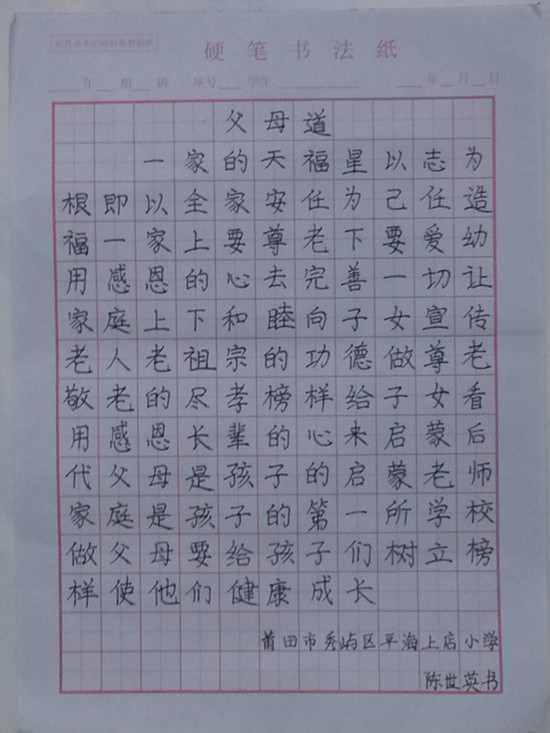 硬笔书法纸
年 班 座号 学生 年 月 日
父母道
一家的天福星以志为
根即以全家安任为己任造
福一家上要尊老下要爱幼
用感恩的心去完善一切让
家庭上下和睦向子女宣传
老人老祖宗的功德做尊老
敬老的尽孝榜样给子女看
用感恩长辈的心来启蒙后
代父母是孩子的启蒙老师
家庭是孩子的第一所学校
做父母要给孩子们树立榜
样使他们健康成长
莆田市秀屿区平海上店小学
陈世英书